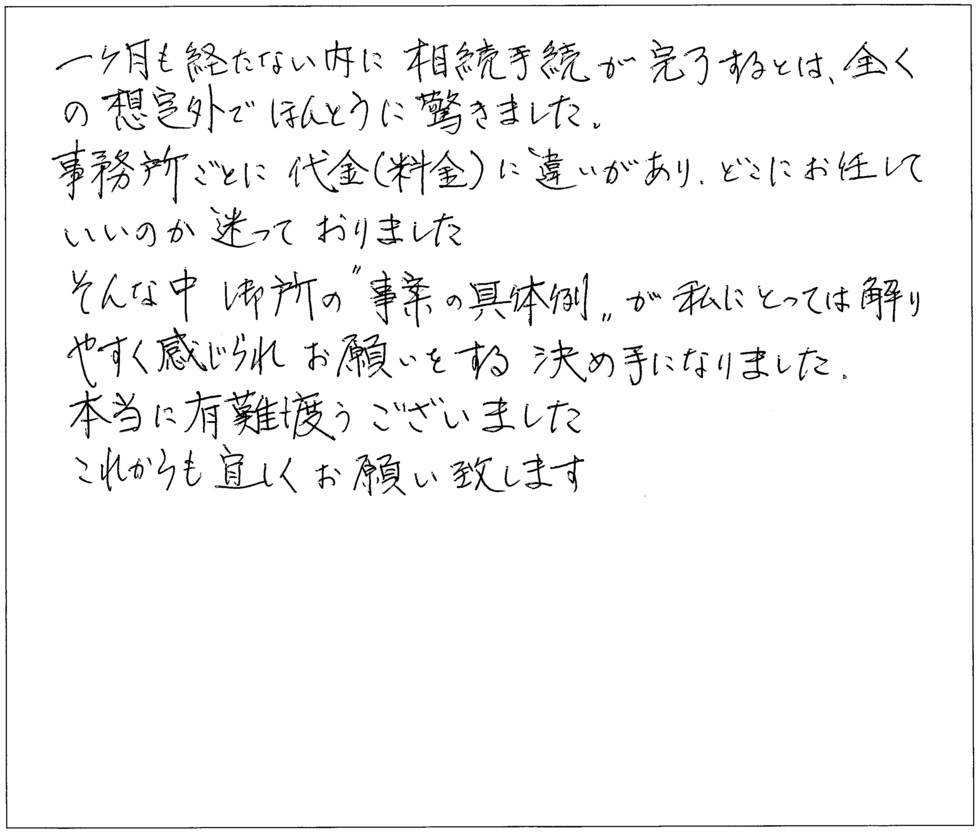 一ヶ月も経たない内に相続手続が完了するとは、全く
の想定外でほんとうに驚きました。
事務所ごとに代金(料金)に違いがあり、どこにお任して
いいのか迷っておりました
そんな中 御所の〝事案の具体例〟が私にとっては解り
やすく感じられ お願いをする 決め手になりました。
本当に有難度うございました
これからも宜しくお願い致します